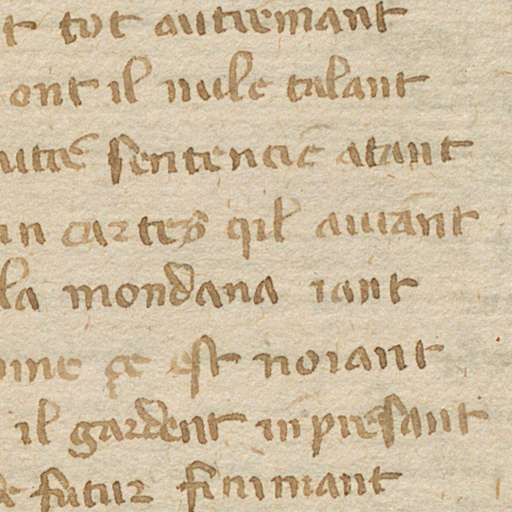 t tot autremant
ont il nule talant
sentencie atant
cartes qil auiant
la mondana iant
ce est noiant
il gardent in presant
de futur fermemant